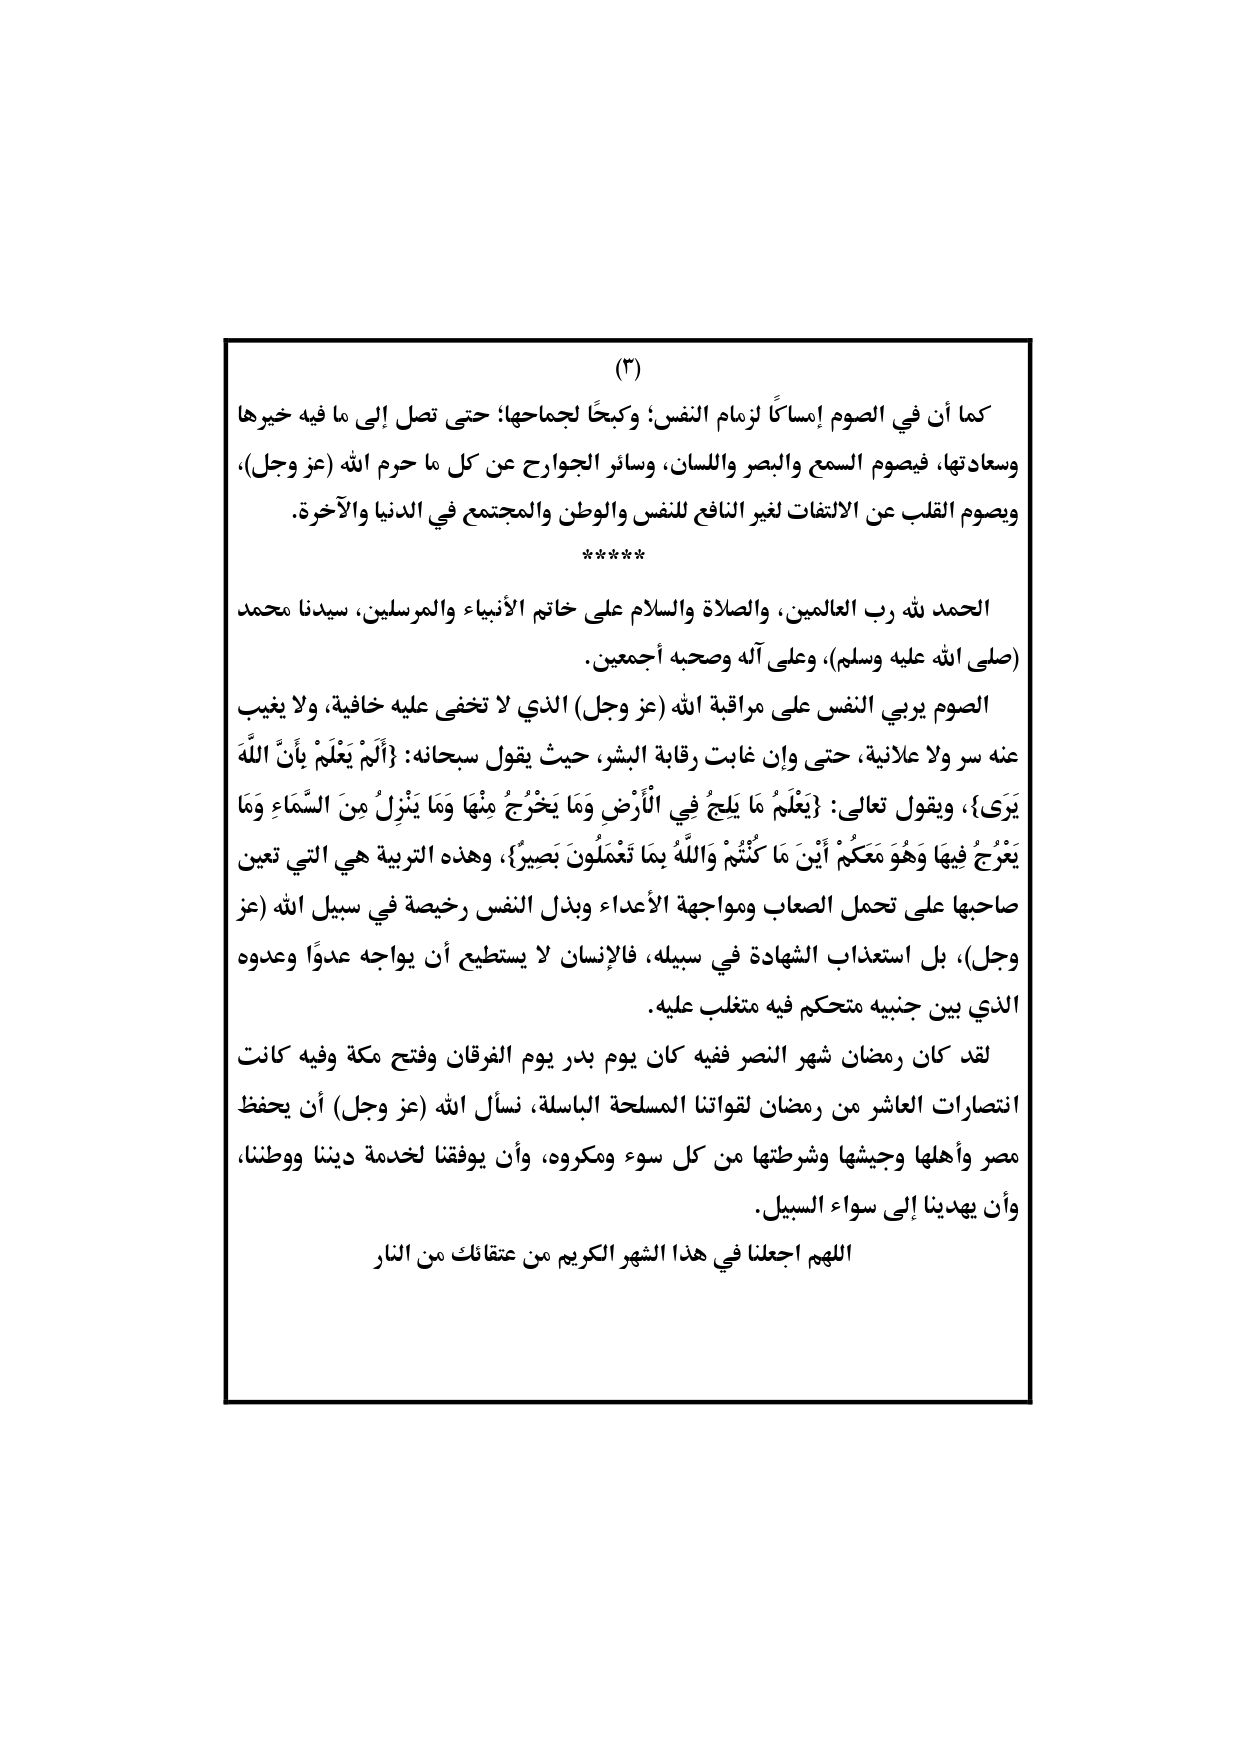 (٣)
كما أن في الصوم إمساكًا لزمام النفس؛ وكبحًا لجماحها؛ حتى تصل إلى ما فيه خيرها
وسعادتها، فيصوم السمع والبصر واللسان، وسائر الجوارح عن كل ما حرم الله (عز وجل)،
ويصوم القلب عن الالتفات لغير النافع للنفس والوطن والمجتمع في الدنيا والآخرة.
*****
الحمد لله رب العالمين، والصلاة والسلام على خاتم الأنبياء والمرسلين، سيدنا محمد
(صلى الله عليه وسلم)، وعلى آله وصحبه أجمعين.
الصوم يربي النفس على مراقبة الله (عز وجل) الذي لا تخفى عليه خافية، ولا يغيب
عنه سر ولا علانية، حتى وإن غابت رقابة البشر، حيث يقول سبحانه: {أَلَمْ يَعْلَمْ بِأَنَّ اللَّهَ
يَرَى}، ويقول تعالى: {يَعْلَمُ مَا يَلِجُ فِي الْأَرْضِ وَمَا يَخْرُجُ مِنْهَا وَمَا يَنْزِلُ مِنَ السَّمَاءِ وَمَا
يَعْرُجُ فِيهَا وَهُوَ مَعَكُمْ أَيْنَ مَا كُنْتُمْ وَاللَّهُ بِمَا تَعْمَلُونَ بَصِيرٌ}، وهذه التربية هي التي تعين
صاحبها على تحمل الصعاب ومواجهة الأعداء وبذل النفس رخيصة في سبيل الله (عز
وجل)، بل استعذاب الشهادة في سبيله، فالإنسان لا يستطيع أن يواجه عدوًا وعدوه
الذي بين جنبيه متحكم فيه متغلب عليه.
لقد كان رمضان شهر النصر ففيه كان يوم بدر يوم الفرقان وفتح مكة وفيه كانت
انتصارات العاشر من رمضان لقواتنا المسلحة الباسلة، نسأل الله (عز وجل) أن يحفظ
مصر وأهلها وجيشها وشرطتها من كل سوء ومكروه، وأن يوفقنا لخدمة ديننا ووطننا،
وأن يهدينا إلى سواء السبيل.
اللهم اجعلنا في هذا الشهر الكريم من عتقائك من النار